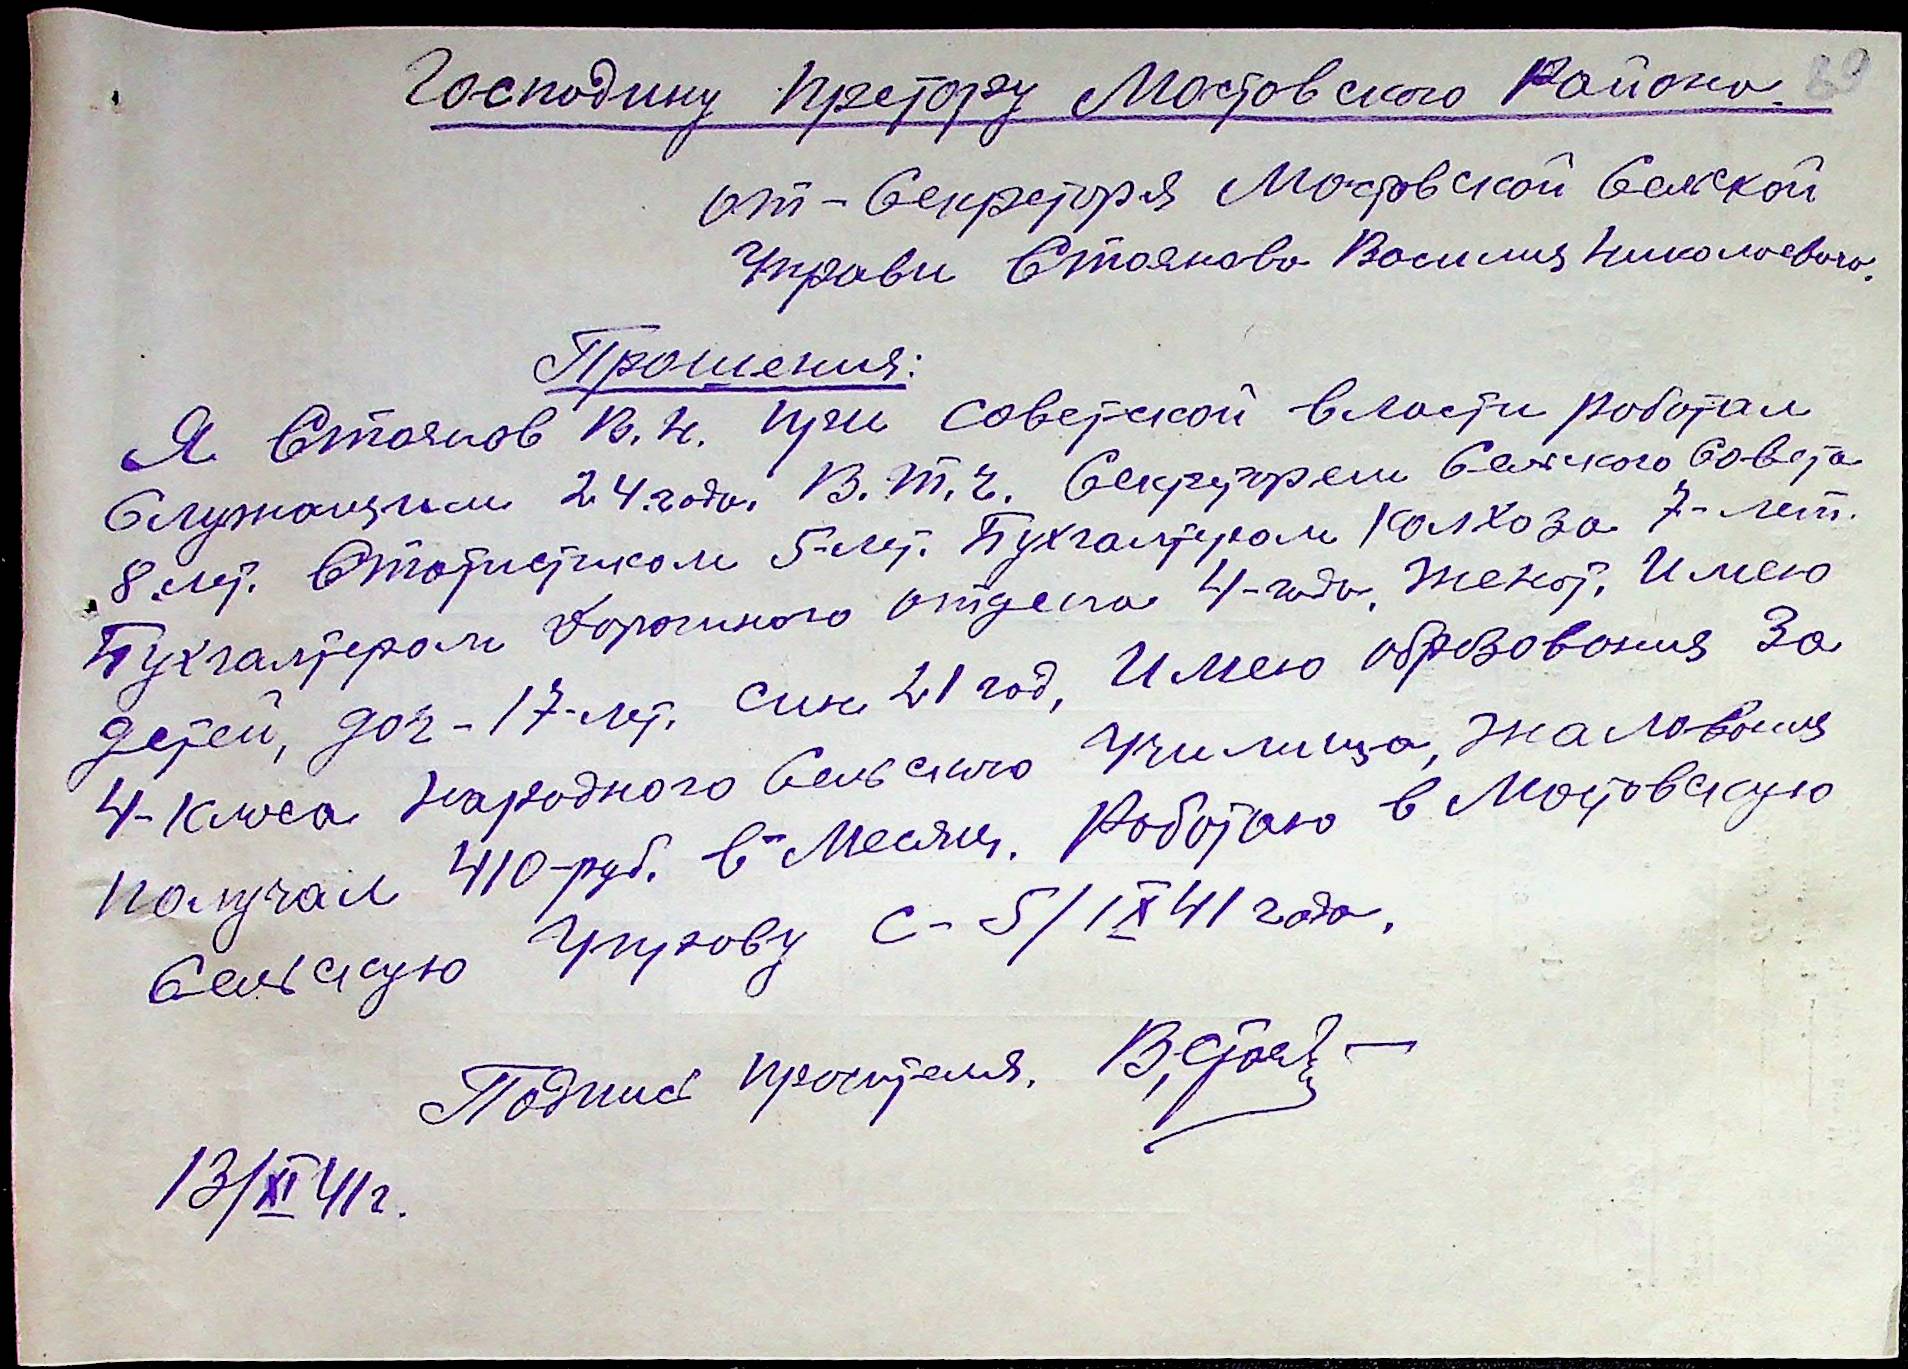 Господину Претору Мостовского Района. 89
от - Секретаря Мостовской Сельской
Управи Стоянова Василия Николаевича.
Прошения:
Я Стоянов В. Н. При Советской власти работал
Служащим 24. года. В. т. ч. Секретарем Сельского Совета
8. лет. Статистиком 5-лет. Бухгалтером Колхоза 7-лет.
Бухгалтером Дорожного отдела 4-года. Женат, Имею
детей, доч - 17-лет, син 21 год, Имею образования За
4-класа Народного Сельского Училища, Жалования
получал 410-руб. в-Месяц. Работаю в Мостовскую
Сельскую Управу с - 5/IX 41 года.
Подпись просителя. В. Стоян
13/XI 41 г.